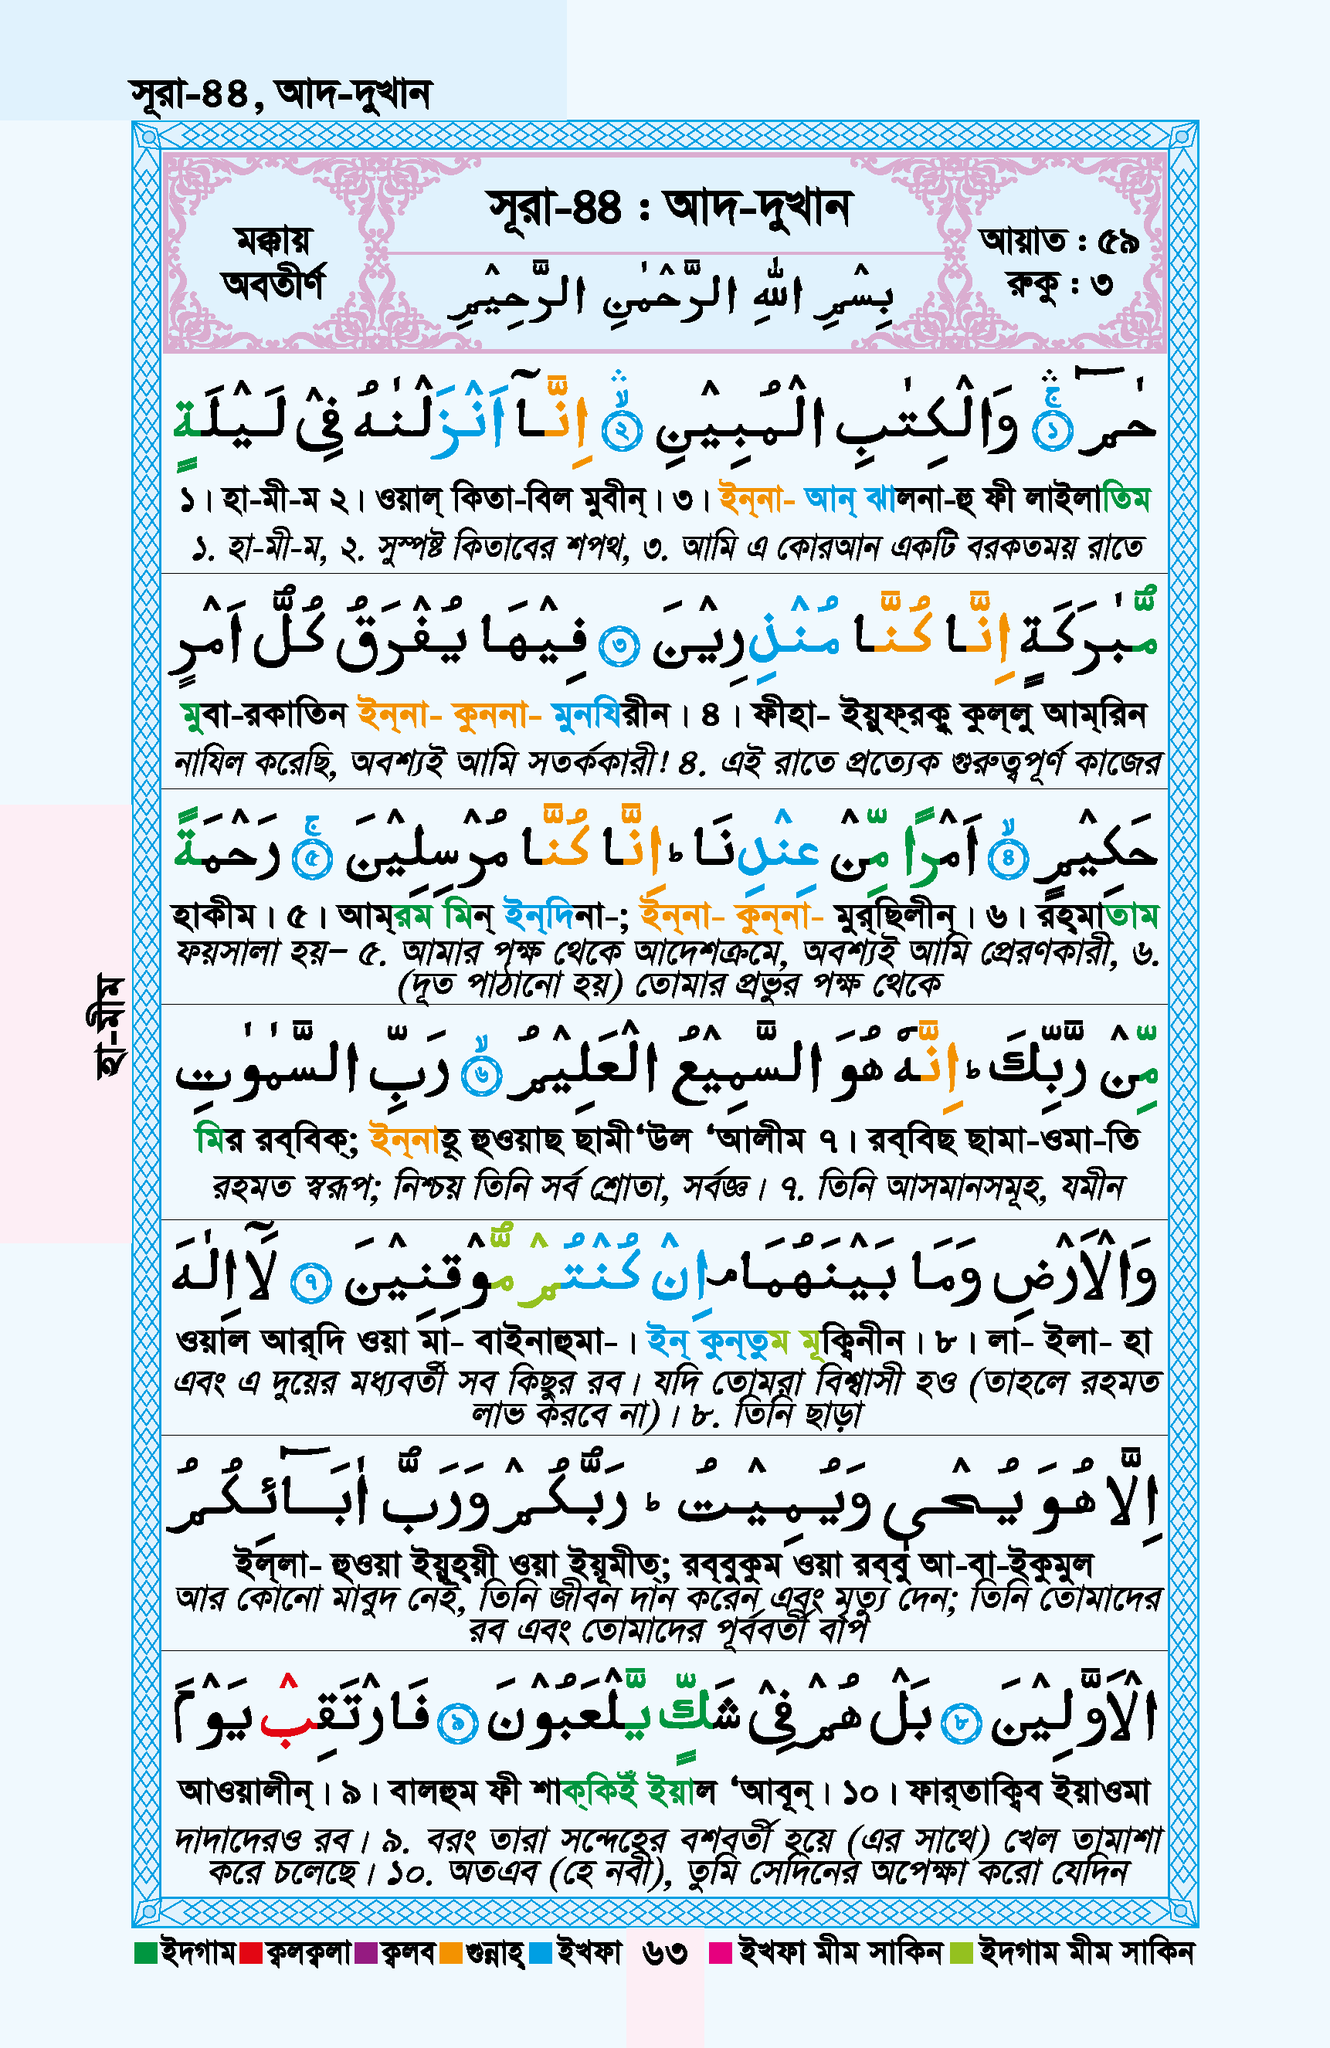 সূরা-৪৪, আদ-দুখান
সূরা-৪৪ : আদ-দুখান
মক্কায়
অবতীর্ণ
আয়াত : ৫৯
রুকু : ৩
بِسْمِ اللّٰهِ الرَّحْمٰنِ الرَّحِيْمِ
حٰمٓ ۚ‏﴿১﴾ وَالْكِتٰبِ الْمُبِيْنِ ۙ‏﴿২﴾ اِنَّاۤ اَنْزَلْنٰهُ فِيْ لَيْلَةٍ
১। হা-মী-ম ২। ওয়াল্ কিতা-বিল মুবীন্। ৩। ইন্না- আন্ ঝালনা-হু ফী লাইলাতিম
১. হা-মী-ম, ২. সুস্পষ্ট কিতাবের শপথ, ৩. আমি এ কোরআন একটি বরকতময় রাতে
مُّبٰرَكَةٍ اِنَّا كُنَّا مُنْذِرِيْنَ ﴿৩﴾ فِيْهَا يُفْرَقُ كُلُّ اَمْرٍ
মুবা-রকাতিন ইন্না- কুননা- মুনযিরীন। ৪। ফীহা- ইয়ুফ্রকু কুল্লু আম্রিন
নাযিল করেছি, অবশ্যই আমি সতর্ককারী! ৪. এই রাতে প্রত্যেক গুরুত্বপূর্ণ কাজের
حَكِيْمٍ ۙ‏﴿৪﴾ اَمْرًا مِّنْ عِنْدِنَا ؕ اِنَّا كُنَّا مُرْسِلِيْنَ ۚ‏﴿৫﴾ رَحْمَةً
হাকীম। ৫। আম্রম মিন্ ইন্দিনা-; ইন্না- কুন্না- মুর্ছিলীন্। ৬। রহ্মাতাম
ফয়সালা হয়– ৫. আমার পক্ষ থেকে আদেশক্রমে, অবশ্যই আমি প্রেরণকারী, ৬.
(দূত পাঠানো হয়) তোমার প্রভুর পক্ষ থেকে
হা-মীম
مِّنْ رَّبِّكَ ؕ اِنَّهٗ هُوَ السَّمِيْعُ الْعَلِيْمُ ۙ‏﴿৬﴾ رَبِّ السَّمٰوٰتِ
মির রব্বিক্; ইন্নাহূ হুওয়াছ ছামী‘উল ‘আলীম ৭। রব্বিছ ছামা-ওমা-তি
রহমত স্বরূপ; নিশ্চয় তিনি সর্ব শ্রোতা, সর্বজ্ঞ। ৭. তিনি আসমানসমূহ, যমীন
وَالْاَرْضِ وَمَا بَيْنَهُمَا ۘ اِنْ كُنْتُمْ مُّوْقِنِيْنَ ﴿৭﴾ لَاۤ اِلٰهَ
ওয়াল আর্দি ওয়া মা- বাইনাহুমা-। ইন্ কুন্তুম মূক্বিনীন। ৮। লা- ইলা- হা
এবং এ দুয়ের মধ্যবর্তী সব কিছুর রব। যদি তোমরা বিশ্বাসী হও (তাহলে রহমত
লাভ করবে না)। ৮. তিনি ছাড়া
اِلَّا هُوَ يُحْيٖ وَيُمِيْتُ ؕ رَبُّكُمْ وَرَبُّ اٰبَآئِكُمُ
ইল্লা- হুওয়া ইয়ুহ্য়ী ওয়া ইয়ূমীত্; রব্বুকুম ওয়া রব্বু আ-বা-ইকুমুল
আর কোনো মাবুদ নেই, তিনি জীবন দান করেন এবং মৃত্যু দেন; তিনি তোমাদের
রব এবং তোমাদের পূর্ববর্তী বাপ
الْاَوَّلِيْنَ ﴿৮﴾ بَلْ هُمْ فِيْ شَكٍّ يَّلْعَبُوْنَ ﴿৯﴾ فَارْتَقِبْ يَوْمَ
আওয়ালীন্। ৯। বালহুম ফী শাক্কিইঁ ইয়াল ‘আবূন্। ১০। ফার্তাক্বিব ইয়াওমা
দাদাদেরও রব। ৯. বরং তারা সন্দেহের বশবর্তী হয়ে (এর সাথে) খেল তামাশা
করে চলেছে। ১০. অতএব (হে নবী), তুমি সেদিনের অপেক্ষা করো যেদিন
ইদগাম ক্বলক্বলা ক্বলব গুন্নাহ্ ইখফা ৬৩ ইখফা মীম সাকিন ইদগাম মীম সাকিন